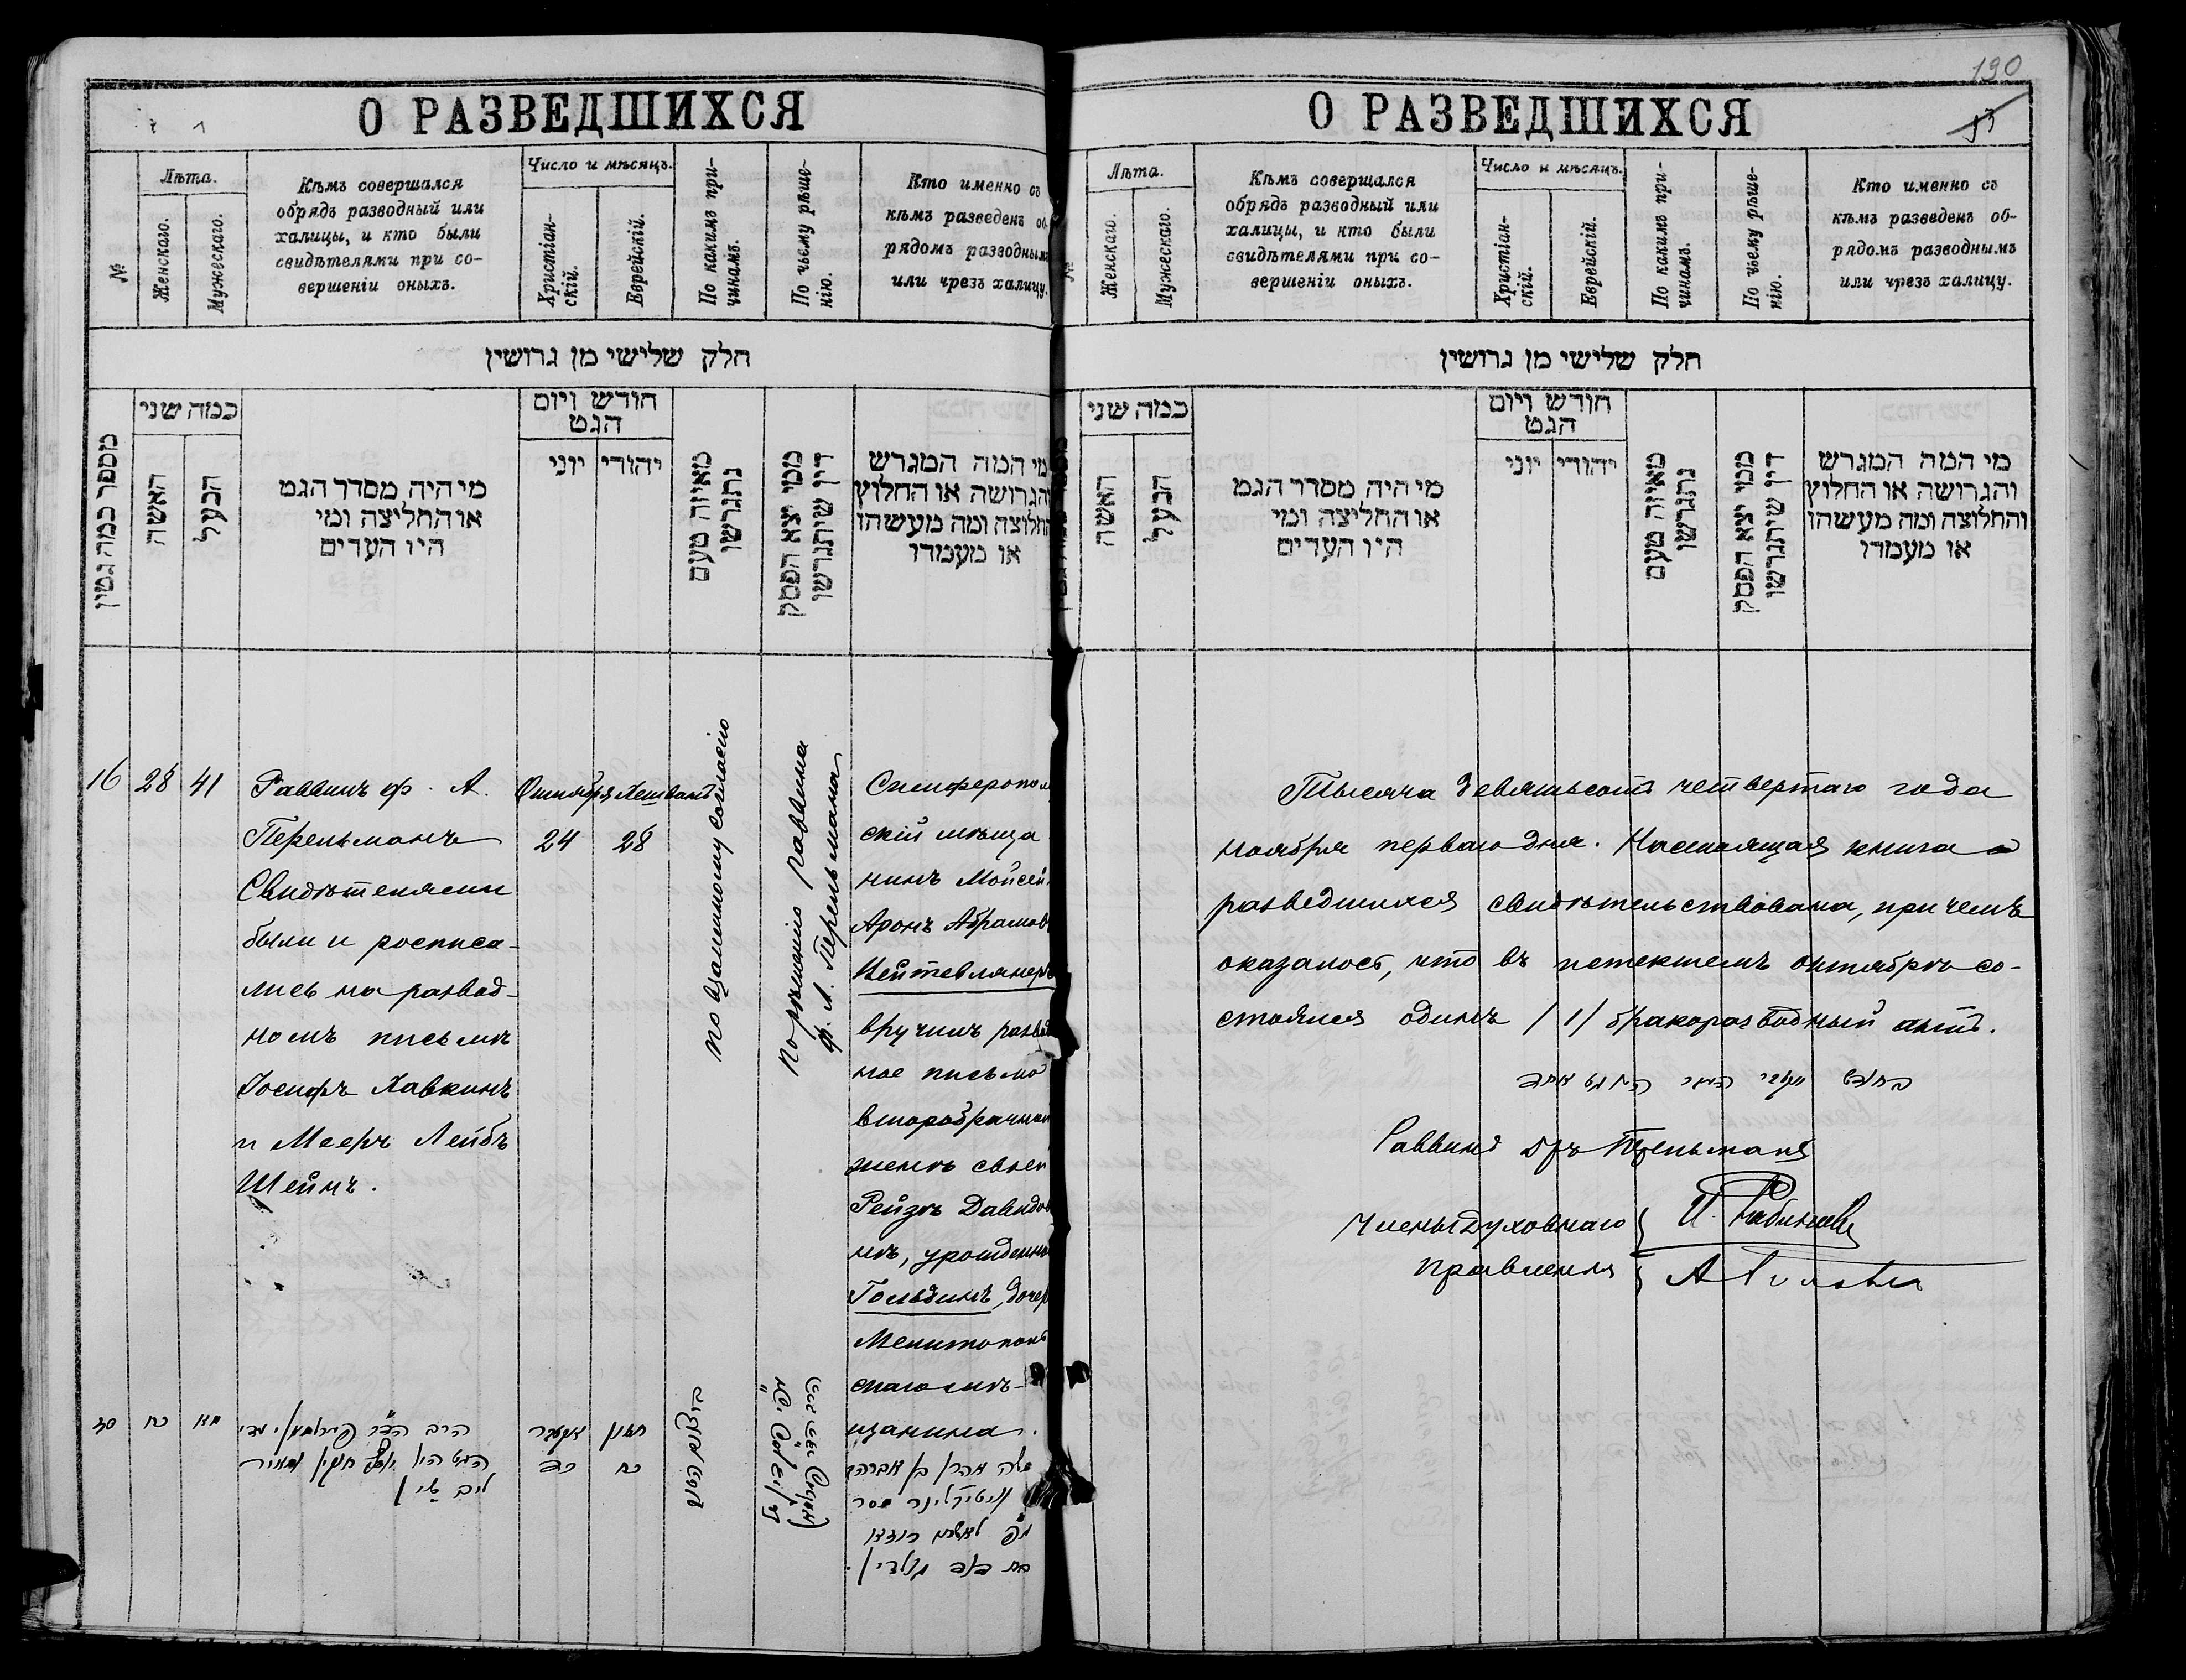 О РАЗВЕДШИХСЯ
№
Лѣта.
Женскаго.
Мужескаго.
Кѣмъ совершался
обрядъ разводный или
халицы, и кто были
свидѣтелями при со-
вершеніи оныхъ.
Число и мѣсяцъ.
Христіан-
скій.
Еврейскій.
По какимъ при-
чинамъ.
По чьему рѣше-
нію.
Кто именно съ
кѣмъ разведенъ об-
рядомъ разводнымъ
или чрезъ халицу.
חלק שלישי מן גרושין
מספר כמה גטין
כמה שני
האשה
הבעל
מי היה מסדר הגט
או החליצה ומי
היו העדים
חודש ויום
הגט
יוני
יהודי
מאיזה טעם
נתגרשו
ממי יצא הפסק
דין שיתגרשו
מי המה המגרש
והגרושה או החלוץ
והחלוצה ומה מעשהו
או מעמדו
16 28 41
Раввинъ ф. А.
Перельманъ
Свидѣтелями
были и росписа-
лись на развод-
номъ письмѣ
Іосифъ Хавкинъ
и Мееръ Лейбъ
Шейнъ.
Октября Хешванъ
24 28
по взаимному согласію
По рѣшенію раввина
ф. А. Перельмана
Симферополь
скій мѣща
нинъ Мойсей
Аронъ Абрамов
Кейтевлянеръ
вручилъ развод
ное письмо
второбрачной
женѣ своей
Рейзѣ Давидов
нѣ, урожденной
Гольдинъ, дочер
Мелитополь
скаго мѣ-
щанина.
כח מא
חשון
כח כד
190
О РАЗВЕДШИХСЯ
№
Лѣта.
Женскаго.
Мужескаго.
Кѣмъ совершался
обрядъ разводный или
халицы, и кто были
свидѣтелями при со-
вершеніи оныхъ.
Число и мѣсяцъ.
Христіан-
скій.
Еврейскій.
По какимъ при-
чинамъ.
По чьему рѣше-
нію.
Кто именно съ
кѣмъ разведенъ об-
рядомъ разводнымъ
или чрезъ халицу.
חלק שלישי מן גרושין
כמה שני
האשה
הבעל
מי היה מסדר הגט
או החליצה ומי
היו העדים
חודש ויום
הגט
יוני
יהודי
מאיזה טעם
נתגרשו
ממי יצא הפסק
דין שיתגרשו
מי המה המגרש
והגרושה או החלוץ
והחלוצה ומה מעשהו
או מעמדו
Тысяча девятьсотъ четвертаго года
ноября перваго дня. Настоящая книга о
разведшихся свидѣтельствована, при чемъ
оказалось, что въ истекшемъ октябрѣ со-
стоялся одинъ /1/ бракоразводный актъ.
Раввинъ Дръ Перельманъ
Члены духовнаго
правленія